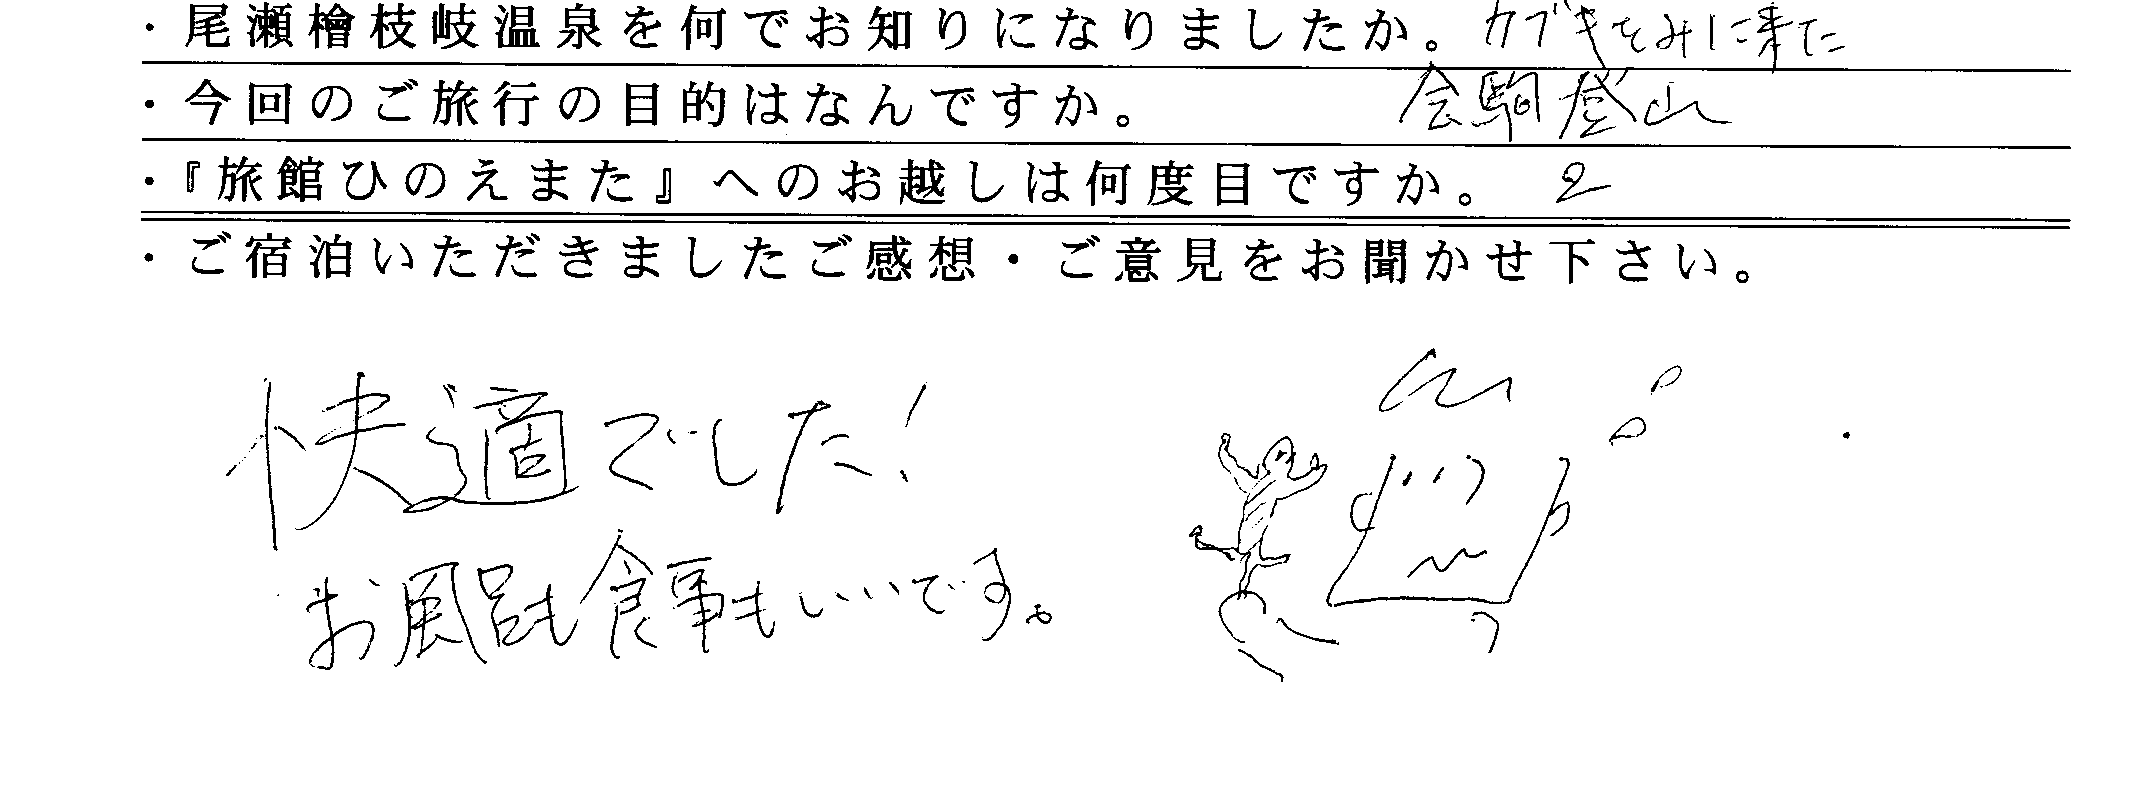 ・尾瀬檜枝岐温泉を何でお知りになりましたか。カブキをみに来た
・今回のご旅行の目的はなんですか。会駒登山
・『旅館ひのえまた』へのお越しは何度目ですか。2
・ご宿泊いただきましたご感想・ご意見をお聞かせ下さい。
快適でした！
お風呂も食事もいいです。